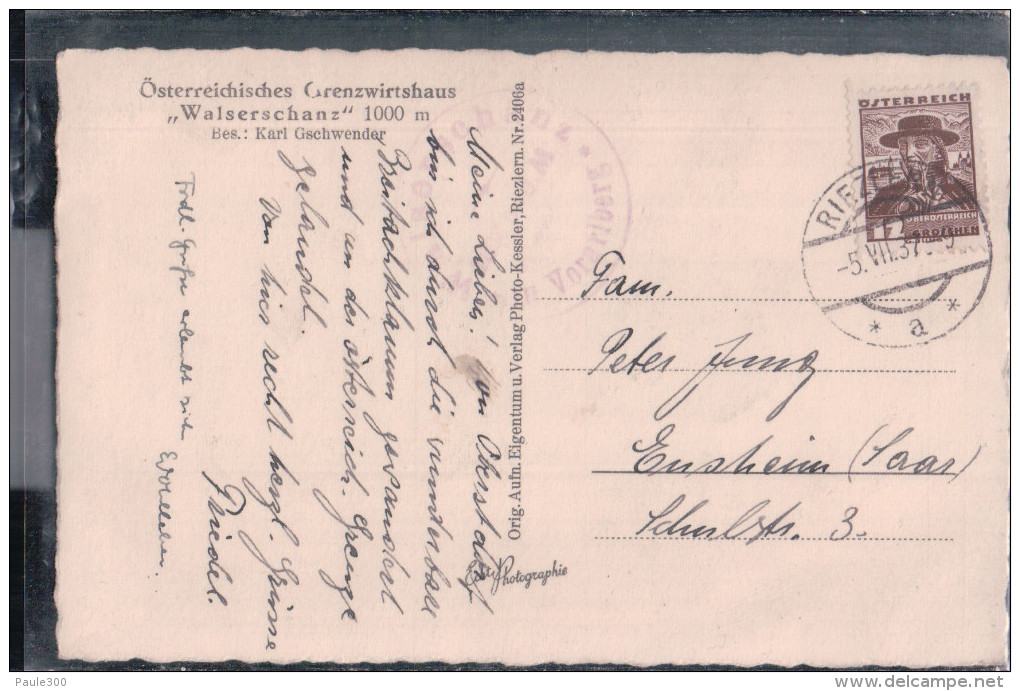 Österreichisches Grenzwirtshaus
„Walserschanz" 1000 m
Bes.: Karl Gschwender
Meine Lieben! Von Oberstdorf
bin ich durch die wunderbare
Breitachklamm gewandert
und an der österreich. Grenze
gelandet.
Von hier recht herzl. Grüsse
Friedel.
Frdl. Grüße erlaubt sich
Orig. Aufn. Eigentum u. Verlag Photo-Kessler, Riezlern. Nr. 2406a
Photographie
Walserschanz
Vorarlberg
ÖSTERREICH
OBERÖSTERREICH
12 GROSCHEN
RIEZLERN
-5.VII.37
* a *
Fam.
Peter Jung
Ensheim (Saar)
Schulstr. 3.
Paule300
www.delcampe.net